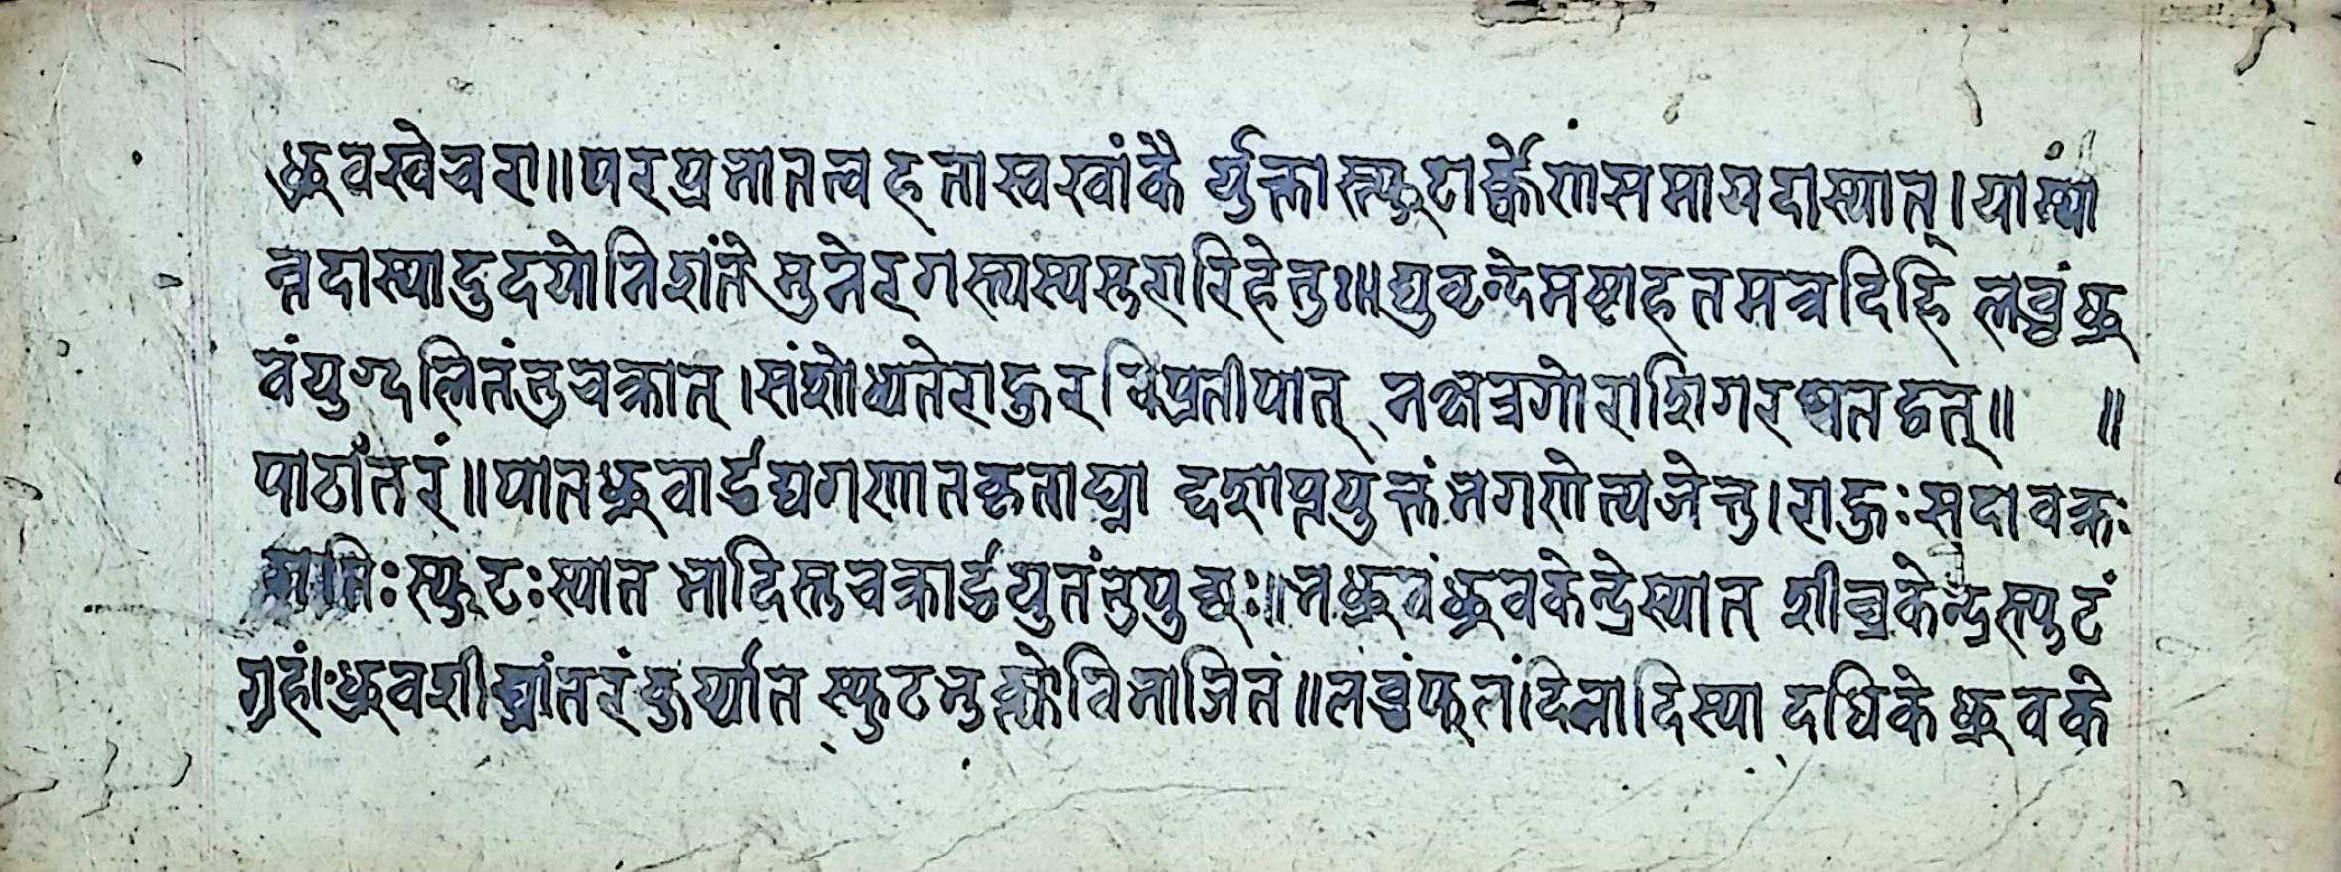 ध्रुवखेचरा॥परप्रभातत्वहताखखांकै र्युक्तास्फुटार्क्केणसमायदास्यात्।याम्यां
न्तदास्यादुदयोनिशंते मुनेरगस्त्यस्यसुरारिहेतुः॥द्युवृन्देमष्टाहतमत्रदिहि लब्धंध्रु
वंयुग्दलितंतुचक्रात्।संशोध्यतेराहुरविप्रतीपात् नक्षत्रगोराशिगरश्चतद्वत्॥ ॥
पाठांतरं॥पातध्रुवार्द्धद्युगणातकृताघ्ना द्दशाप्तयुक्तंभगणेत्यजेत्तु।राहुःसदावक्र
गतिःस्फुटःस्यात भादिस्तुचक्रार्द्धयुतंतुपुच्छः॥नध्रुवंध्रुवकेन्द्रेस्यात शीघ्रकेन्द्रस्फुटं
ग्रहं।ध्रुवशीघ्रांतरंकुर्य्यात स्फुटभुक्त्योविभाजितं॥लब्धंफलंदिनादिस्या दधिकेध्रुवके